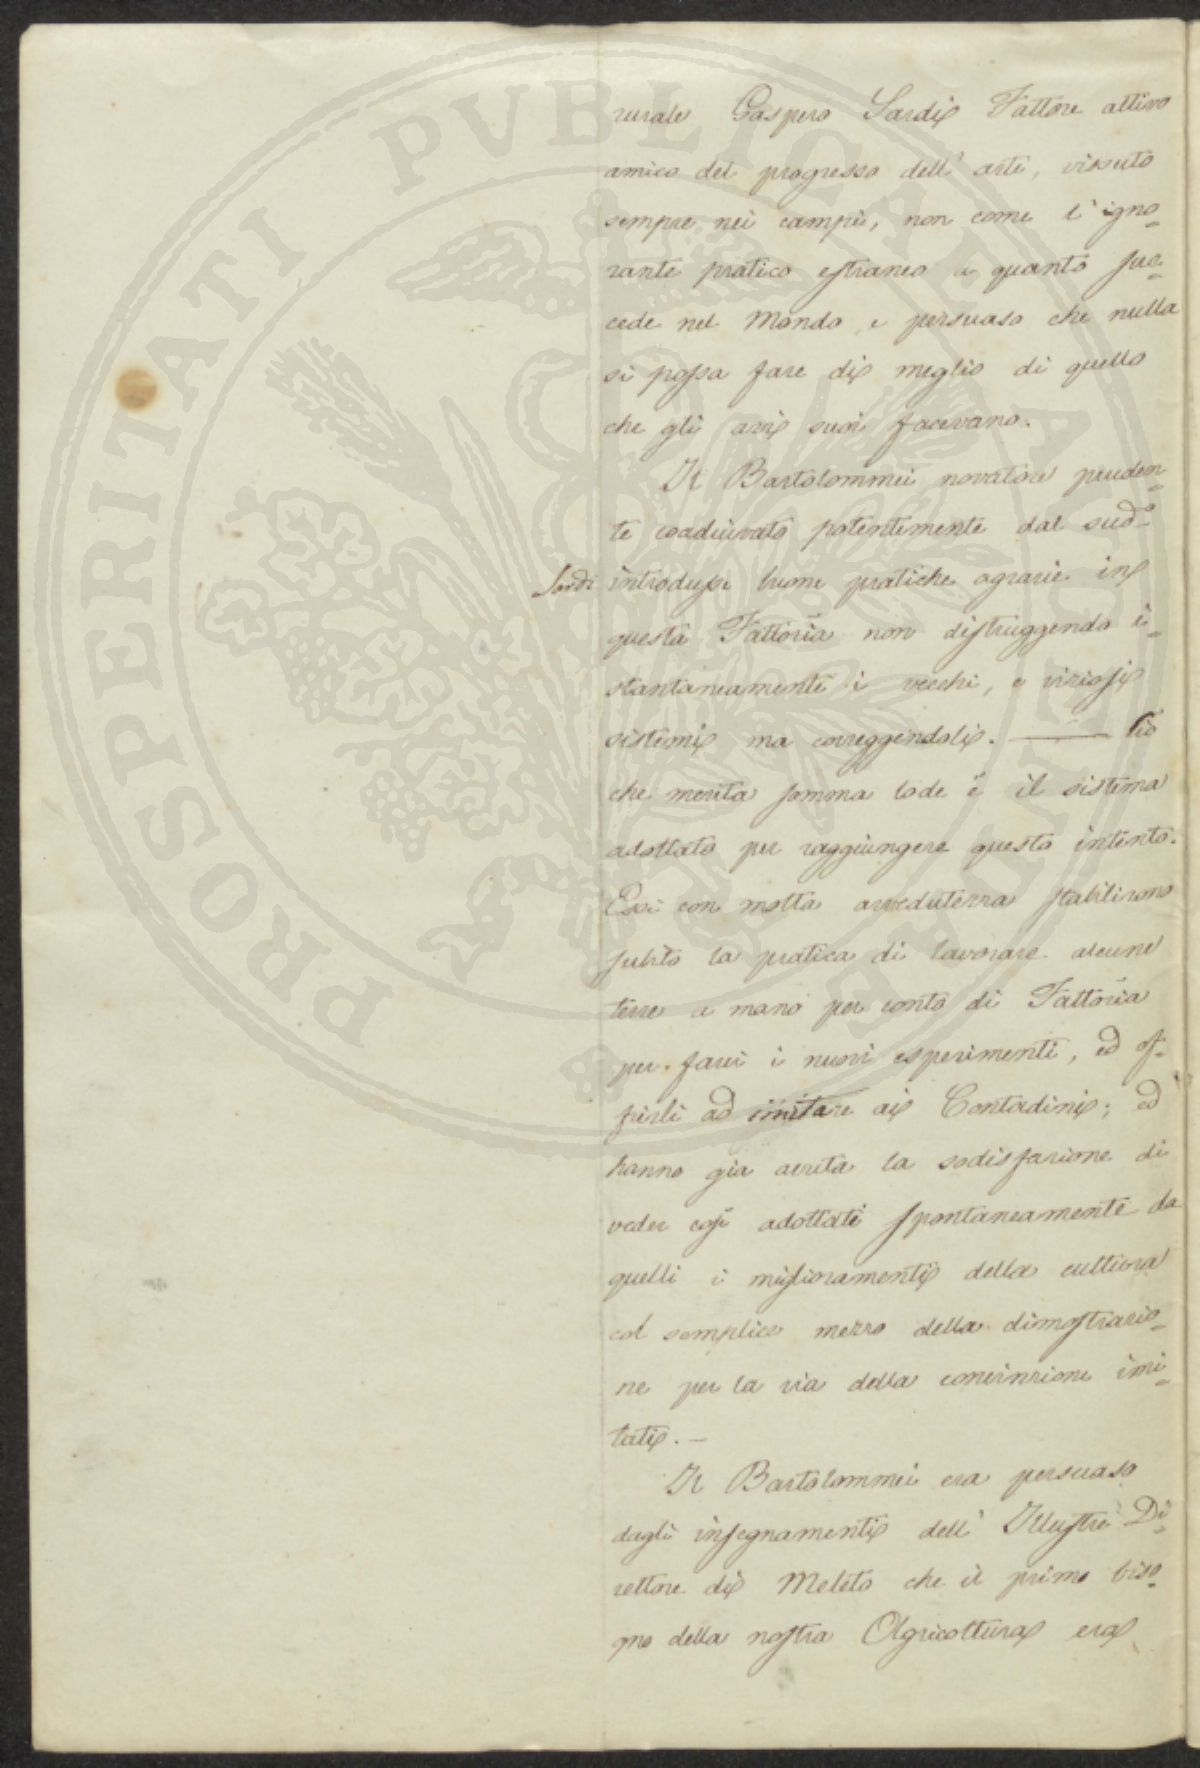 PROSPERITATI PUBLICAE AUGENDAE
rurale Gaspero Sardi Fattore attivo
amico del progresso dell' arte, vissuto
sempre nei campi, non come l' igno=
rante pratico estraneo a quanto suc=
cede nel Mondo, e persuaso che nulla
si possa fare di meglio di quello
che gli avi suoi facevano.
Il Bartolommei novatore pruden=
te coadiuvato potentemente dal sudº
Sardi introdusse buone pratiche agrarie in
questa Fattoria non distruggendo i=
stantaneamente i vecchi, e viziosi
sistemi ma correggendoli. — Ciò
che merita somma lode è il sistema
adottato per raggiungere questo intento.
Essi con molta avvedutezza stabilirono
subito la pratica di lavorare alcune
terre a mano per conto di Fattoria
per farvi i nuovi esperimenti, ed of=
frirli ad imitare ai Contadini; ed
hanno già avuta la sodisfazione di
veder così adottati spontaneamente da
quelli i miglioramenti della cultura
col semplice mezzo della dimostrazio=
ne per la via della convinzione imi=
tati. —
Il Bartolommei era persuaso
dagli insegnamenti dell' Illustre Di=
rettore di Meleto che il primo biso=
gno della nostra Agricoltura era